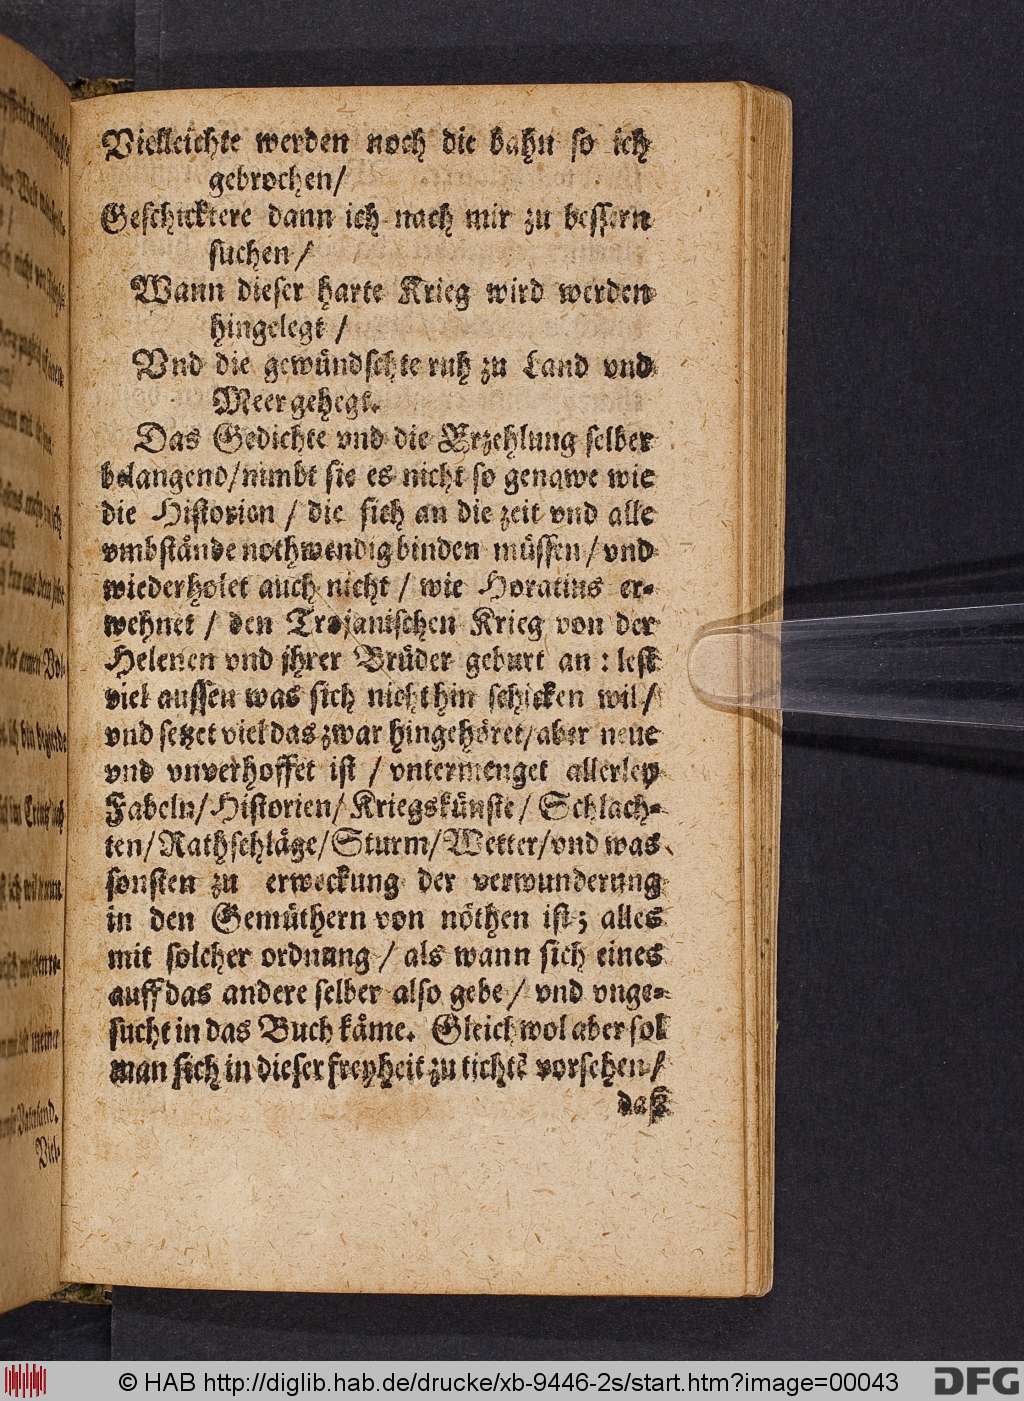 Vielleichte werden noch die bahn so ich
gebrochen/
Geschicktere dann ich nach mir zu bessern
suchen/
Wann dieser harte Krieg wird werden
hingelegt /
Vnd die gewündschte ruh zu Land vnd
Meer gehegt.
Das Gedichte vnd die Erzehlung selber
belangend/nimbt sie es nicht so genawe wie
die Historien / die sich an die zeit vnd alle
vmbstände nothwendig binden müssen/ vnd
wiederholet auch nicht / wie Horatius er-
wehnet / den Trojanischen Krieg von der
Helenen vnd jhrer Brüder geburt an : lest
viel aussen was sich nicht hin schicken wil/
vnd setzet viel das zwar hingehöret/aber neue
vnd vnverhoffet ist / vntermenget allerley
Fabeln/ Historien/ Kriegskünste/ Schlach-
ten/ Rathschläge/ Sturm/ Wetter/ vnd was
sonsten zu erweckung der verwunderung
in den Gemüthern von nöthen ist; alles
mit solcher ordnung / als wann sich eines
auff das andere selber also gebe / vnd vnge-
sucht in das Buch käme. Gleichwol aber sol
man sich in dieser freyheit zu tichtē vorsehen/
daß
Vaterland.
Viel-
© HAB http://diglib.hab.de/drucke/xb-9446-2s/start.htm?image=00043
DFG